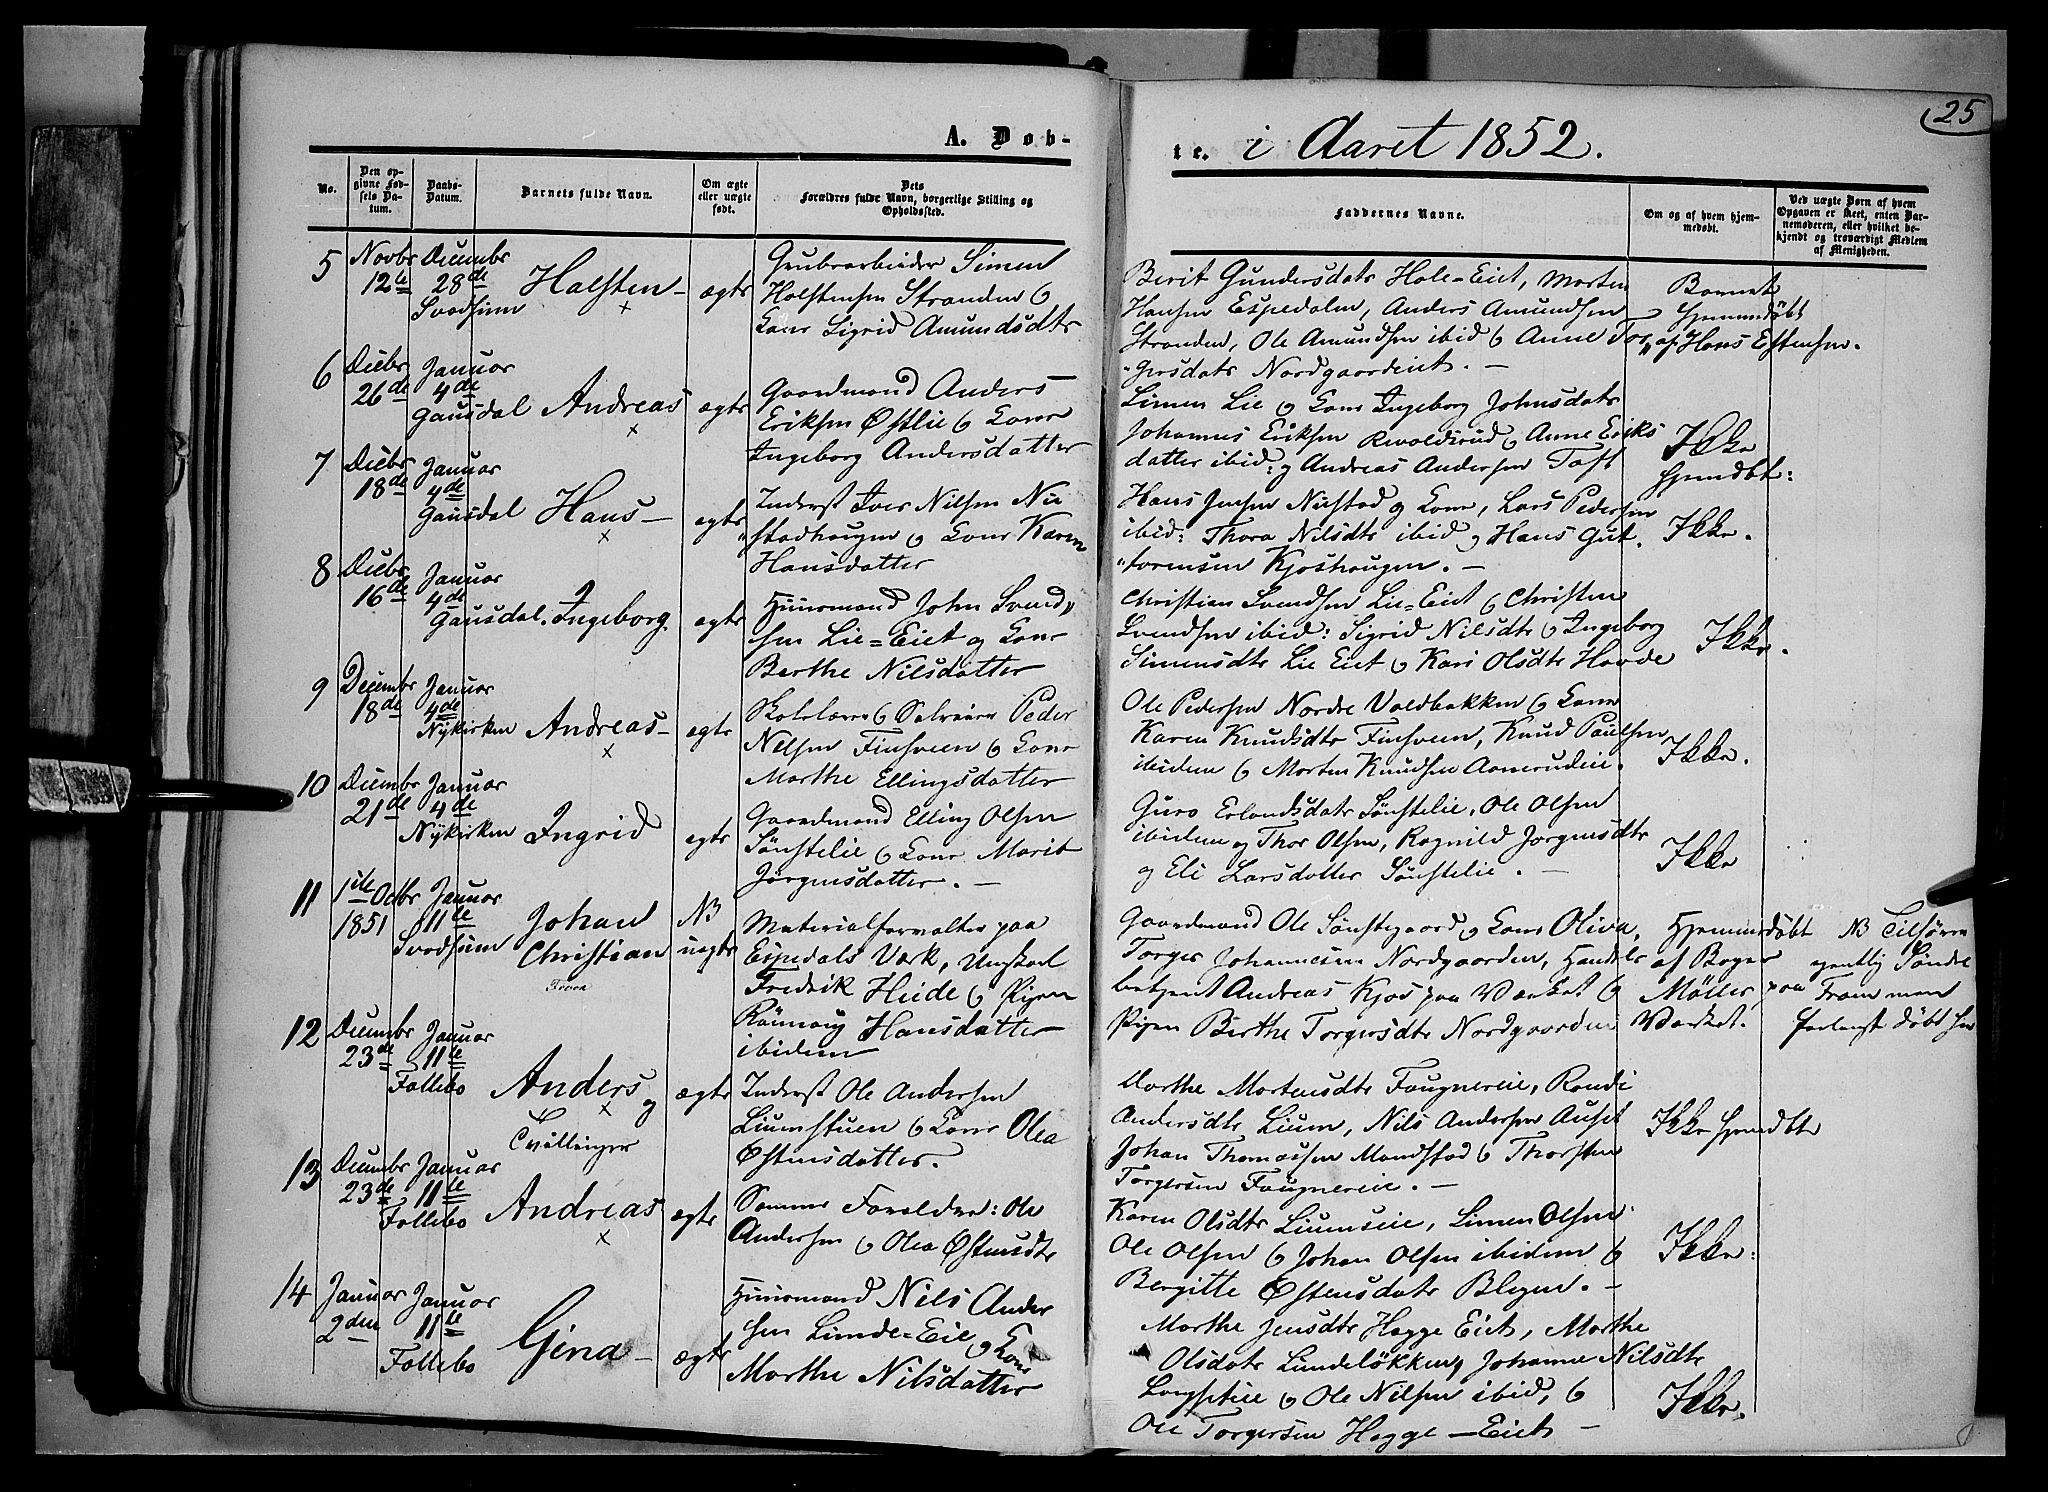 25
A. Døb-
te. i Aaret 1852.
No.
Den opgivne Fødsels Datum.
Daabs-Datum.
Barnets fulde Navn.
Om ægte eller uægte født.
Dets Forældres fulde Navn, borgerlige Stilling og Opholdssted.
Faddernes Navne.
Om og af hvem hjemmedøbt.
Ved uægte Børn af hvem Opgaven er skeet, enten Barnemoderen, eller hvilket bekjendt og troværdigt Medlem af Menigheden.
5 Novbr Decembr
12te 28de Halsten – ægte
Svadsum
Grubearbeider Simen
Halstensen Stranden &
Kone Sigrid Amundsdtr
Berit Gundersdatr Hole-Eiet, Morten
Hansen Espedalen, Anders Amundsen
Stranden, Ole Amundsen ibid & Anne Tor
"gersdatr Nordgaardeiet. –
Barnet
hjemmedøbt
af Hans Estensen.
6 Decbr Januar
26de 4de
Gausdal Andreas ægte
Gaardmand Anders
Eriksen Østlie & Kone
Ingeborg Andersdatter
Simen Lie & Kone Ingeborg Johnsdatr
Johannes Eriksen & Anne Eriks
datter ibid: & Andreas Andersen Toft
Ikke
hjemdøbt:
7 Decbr Januar
18de 4de
Gausdal Hans – ægte
Inderst Iver Nilsen Nu
"stadhaugen & Kone Karen
Hansdatter
Hans Jensen Nustad & Kone, Lars Pedersen
ibid: Thora Nilsdtr ibid & Hans Gut
"tormsen Kjoshaugen. –
Ikke.
8 Decbr Januar
16de 4de
Gausdal. Ingeborg. ægte
Huusmand John Svend"
sen Lie=Eiet og Kone
Berthe Nilsdatter
Christian Svendsen Lie=Eiet & Christen
Svendsen ibid: Sigrid Nilsdtr & Ingeborg
Simensdtr Lie Eiet & Kari Olsdtr Hovde
Ikke.
9 Decembr Januar
18de 4de
Nykirken Andreas – ægte
Skolelærer & Selveier Peder
Nelsen Finsveen & Kone
Marthe Ellingsdatter
Ole Pedersen Nordre Voldbakken & Kone
Karen Knudsdtr Finsveen, Knud Paulsen
ibidem & Morten Knudsen Aamerudeie.
Ikke.
10 Decembr Januar
21de 4de
Nykirken Ingrid ægte
Gaardmand Elling Olsen
Sønstelie & Kone Marit
Jørgensdatter. –
Guro Erlandsdatr Sønstelie, Ole Olsen
ibidem & Thor Olsen, Ragnild Jørgensdtr
& Eli Larsdatter Sønstelie. –
Ikke
11 1ste Octbr Januar
1851 11te
Svadsum
Johan
Christian
NB
uægte
Materialforvalter paa
Espedals Værk, Ungkarl
Fredrik Heide & Pigen
Rønnaug Hansdatter
ibidem
Gaardmand Ole Sønstegaard & Kone Oliva,
Torger Johannesen Nordgaarden, Handels
betjent Andreas Kjos paa Værket &
Pigen Berthe Torgersdtr Nordgaarden
Hjemmedøbt
af Boger
Møller paa
Værket.
NB Tilføren
egentlig Søndre
Fron men
forlangt døbt her
12 Decembr Januar
23de 11te
Follebo Anders ægte
&
Tvillinger
Inderst Ole Andersen
Liumstuen & Kone Olea
Østensdatter.
Marthe Mortensdtr Fougnereie, Randi
Andersdtr Lium, Nils Andersen Auset
Johan Thomassen Mandstad & Thorsten
Torgersen Fougnereie. –
Ikke hjemdøbt
13 Decembr Januar
23de 11te
Follebo Andreas ægte
Samme Foreldre: Ole
Andersen & Olea Østensdtr
Karen Olsdtr Liumseie, Simen Olsen
Ole Olsen & Johan Olsen ibidem &
Bergitte Østensdatr Blegen. –
Ikke:
14 Januar Januar
2den 11te
Follebo Gina – ægte
Huusmand Nils Ander
sen Linde=Eie & Kone
Marthe Nilsdatter
Marthe Jensdtr Hagge Eiet, Marthe
Olsdatr Lundeløkken, Johanne Nilsdtr
& Ole Nilsen ibid, &
Ole Torgersen Hagge – Eiet –
Ikke.